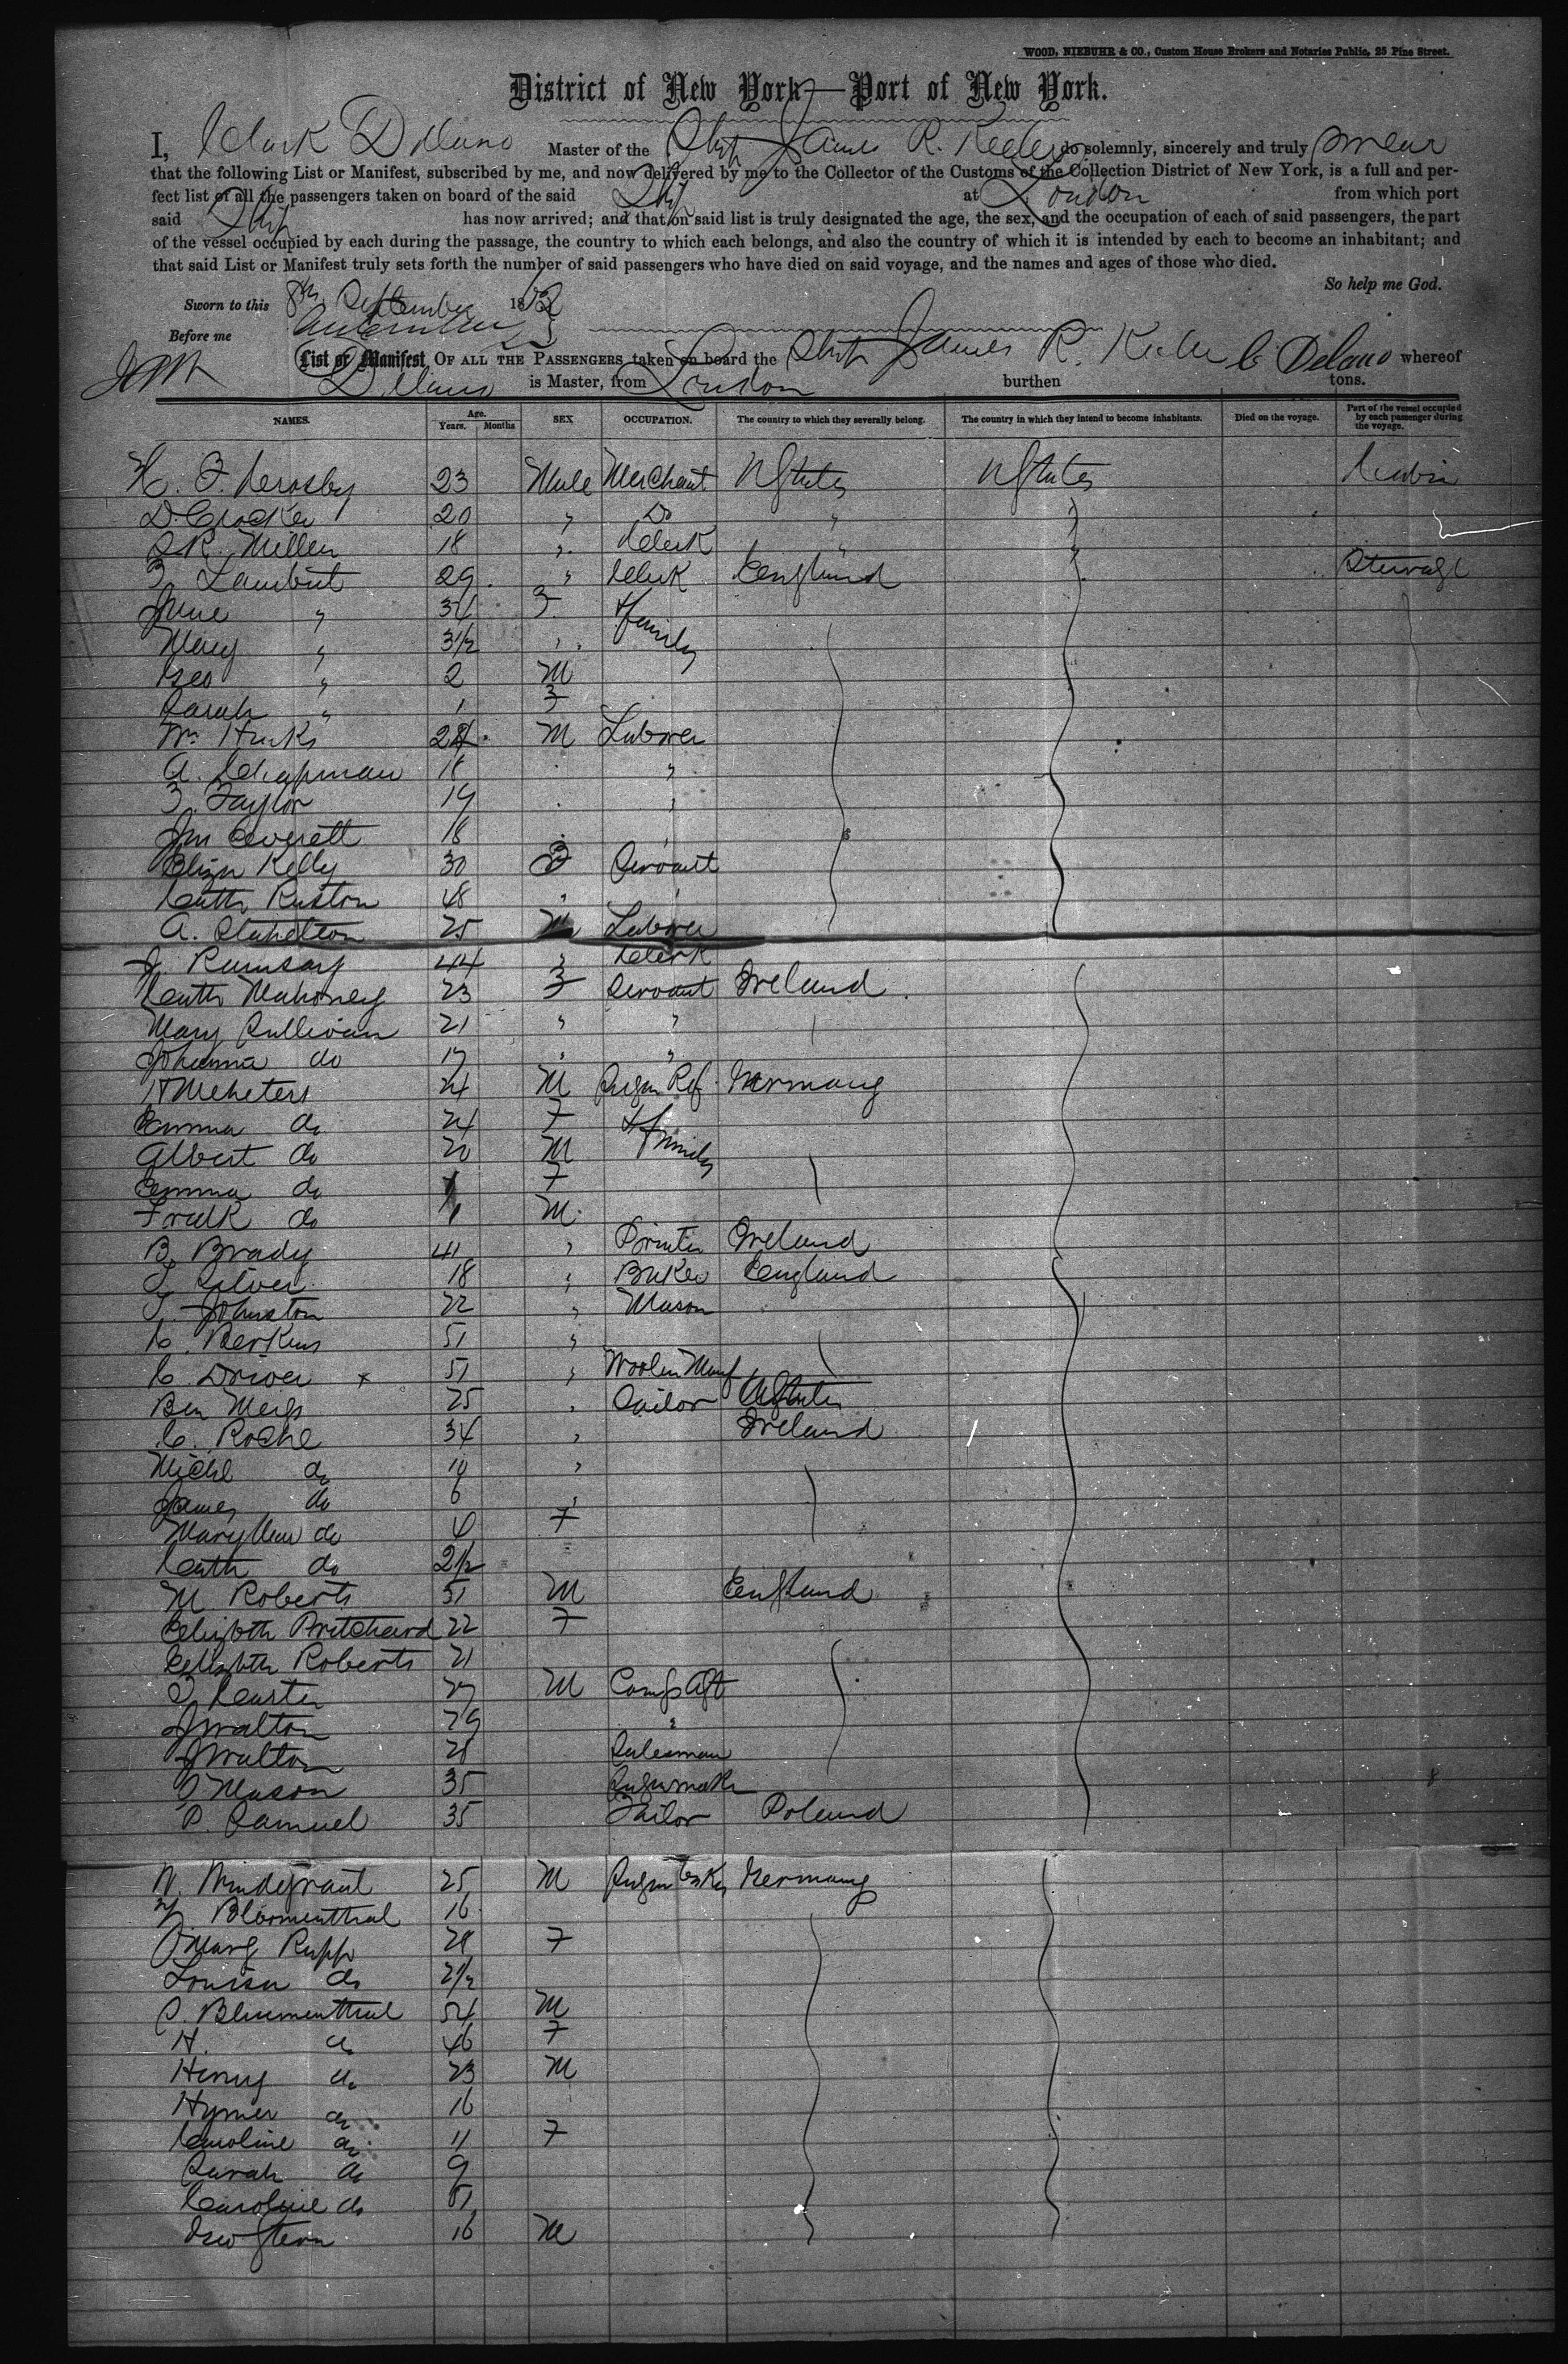 WOOD, NIEBUHR & CO., Custom House Brokers and Notaries Public, 25 Pine Street.
District of New York—Port of New York.
I, Clark Dellano Master of the Ship James R. Keeler do solemnly, sincerely and truly swear
that the following List or Manifest, subscribed by me, and now delivered by me to the Collector of the Customs of the Collection District of New York, is a full and per-
fect list of all the passengers taken on board of the said Ship at London from which port
said Ship has now arrived; and that on said list is truly designated the age, the sex, and the occupation of each of said passengers, the part
of the vessel occupied by each during the passage, the country to which each belongs, and also the country of which it is intended by each to become an inhabitant; and
that said List or Manifest truly sets forth the number of said passengers who have died on said voyage, and the names and ages of those who died.
So help me God.
Sworn to this 8th September 18
Before me
List or Manifest OF ALL THE PASSENGERS taken on board the Ship James R. Keeler C Delano whereof
Dellano is Master, from London burthen tons.
NAMES. Age. Years. Months SEX OCCUPATION. The country to which they severally belong. The country in which they intend to become inhabitants. Died on the voyage. Part of the vessel occupied by each passenger during the voyage.
H. F. Crosby 23 Male Merchant UStates UStates Cabin
D. Crocker 20 " Do " "
S R. Miller 18 " Clerk " "
F. Lambert 29 " Clerk England Steerage
Jane " 34 F & family
Mary " 3 1/2 "
Geo " 2 M
Sarah " 1 F
Wm Hucks M Laborer
A. Chapman 18 "
F. Taylor 19 "
Jno Everett 18 "
Eliza Kelly 30 F Servant
Cath Ruston 48 " "
A. Stapleton 25 M Laborer
J. Rumsay 44 " Clerk
Cath Mahoney 23 F Servant Ireland
Mary Sullivan 21 " "
Johanna do 19 " "
24 M Sugar Ref Germany
Emma do 24 F & family
Albert do 20 M
Emma do F
Frank do M
B. Brady 41 " Printer Ireland
S. Silver 18 " Baker England
T. Johnston 22 " Mason
C. Berkins 51 "
C. Driver x 51 " Woolen Manf
Ben Meigs 25 " Sailor UStates
C. Roche 34 " Ireland
Michl do 10 "
James do 6 "
Mary Ann do 4 F
Cath do 2 1/2
M. Roberts 51 M England
Elizbth Pritchard 22 F
Elizbth Roberts 21
T. Carter 27 M
J Walton 29 "
J Walton 28 Salesman
J Mason 35
P. Samuel 35 Tailor Poland
25 M Germany
Bloomenthal 16
Marg Rupp 28 F
Louisa do 2 1/2
S. Blumenthal 54 M
H. do 46 F
Henry do 23 M
Hymer do 16
Caroline do 11 F
Sarah do 9
Caroline do
Stern 16 M